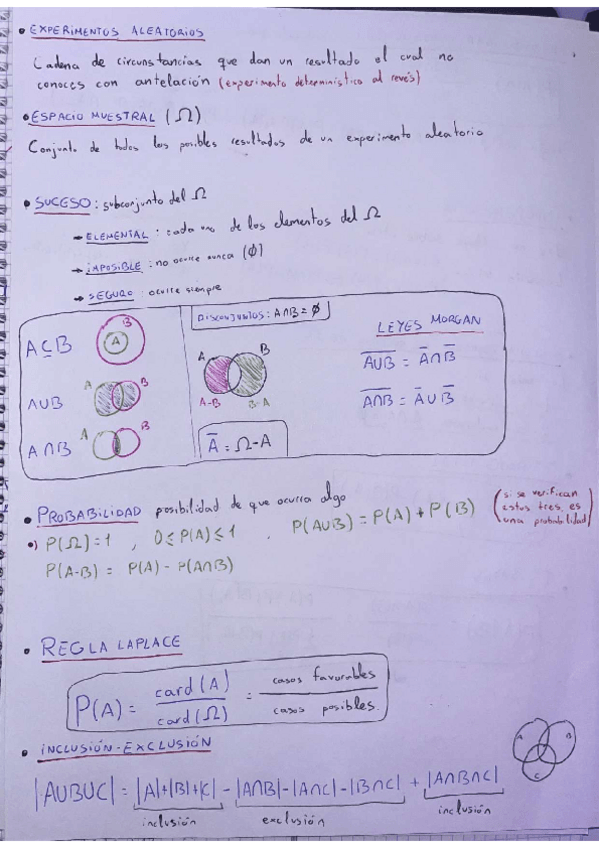 • EXPERIMENTOS ALEATORIOS
Cadena de circunstancias que dan un resultado el cual no
conoces con antelación (experimento deterministico al revés)
• ESPACIO MUESTRAL (Ω)
Conjunto de todos los posibles resultados de un experimento aleatorio
• SUCESO: subconjunto del Ω
→ ELEMENTAL: cada uno de los elementos del Ω
→ iMPOSIBLE: no ocurre nunca (∅)
→ SEGURO: ocurre siempre
A⊆B
B
A
A∪B
A
B
A∩B
A
B
DISCONJUNTOS: A∩B=∅
A
B
A-B
B-A
A̅ = Ω-A
LEYES MORGAN
A̅∪̅B̅ = A̅∩B̅
A̅∩̅B̅ = A̅∪B̅
• PROBABILIDAD posibilidad de que ocurra algo
•) P(Ω)=1 , 0≤P(A)≤1 , P(A∪B)=P(A)+P(B) (si se verifican
estos tres, es
una probabilidad)
P(A-B) = P(A) - P(A∩B)
• REGLA LAPLACE
P(A) = card(A) / card(Ω) = casos favorables / casos posibles.
• iNCLUSIÓN-EXCLUSIÓN
A
B
C
|A∪B∪C| = |A|+|B|+|C| - |A∩B|-|A∩C|-|B∩C| + |A∩B∩C|
inclusión exclusión inclusión